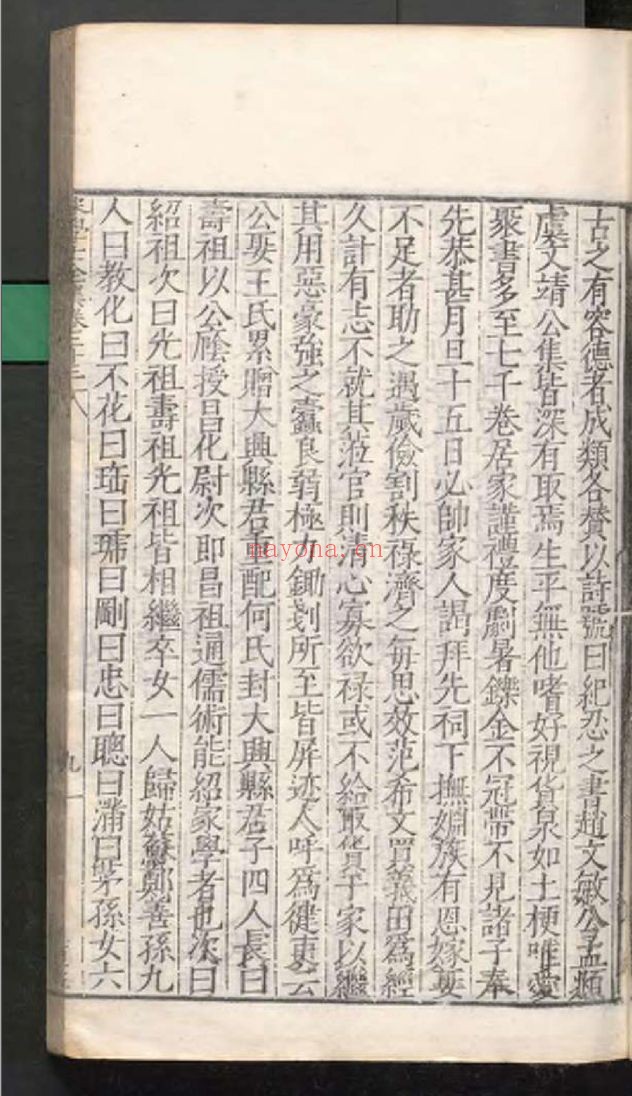 古之有容德者成類各贊以詩號曰紀忍之書趙文敏公孟頫
虞文靖公集皆深有取焉生平無他嗜好視貨泉如土梗唯愛
聚書多至七千卷居家謹禮度劇暑鑠金不冠帶不見諸子奉
先恭甚月旦十五日必帥家人謁拜先祠下撫婣族有恩嫁娶
不足者助之遇歲儉割秩祿濟之每思效范希文買義田為經
久計有志不就其蒞官則清心寡欲祿或不給取貲于家以繼
其用惡豪強之蠹良弱極力鋤剗所至皆屏迹人呼為健吏云
公娶王氏累贈大興縣君董配何氏封大興縣君子四人長曰
壽祖以公廕授昌化尉次即昌祖通儒術能紹家學者也次曰
紹祖次曰先祖壽祖先祖皆相繼卒女一人歸姑蘇鄭善孫九
人曰教化曰不花曰曰琥曰剛曰忠曰聰曰滿曰孫女六
九
nayona.cn